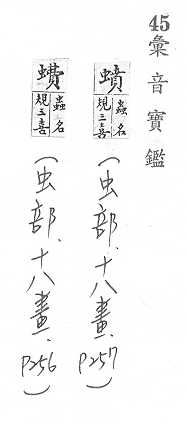 45彙音寶鑑
蟦
蟲名
規三喜
(虫部、十八畫、P257)
蟲名
規三喜
(虫部、十八畫、P256)